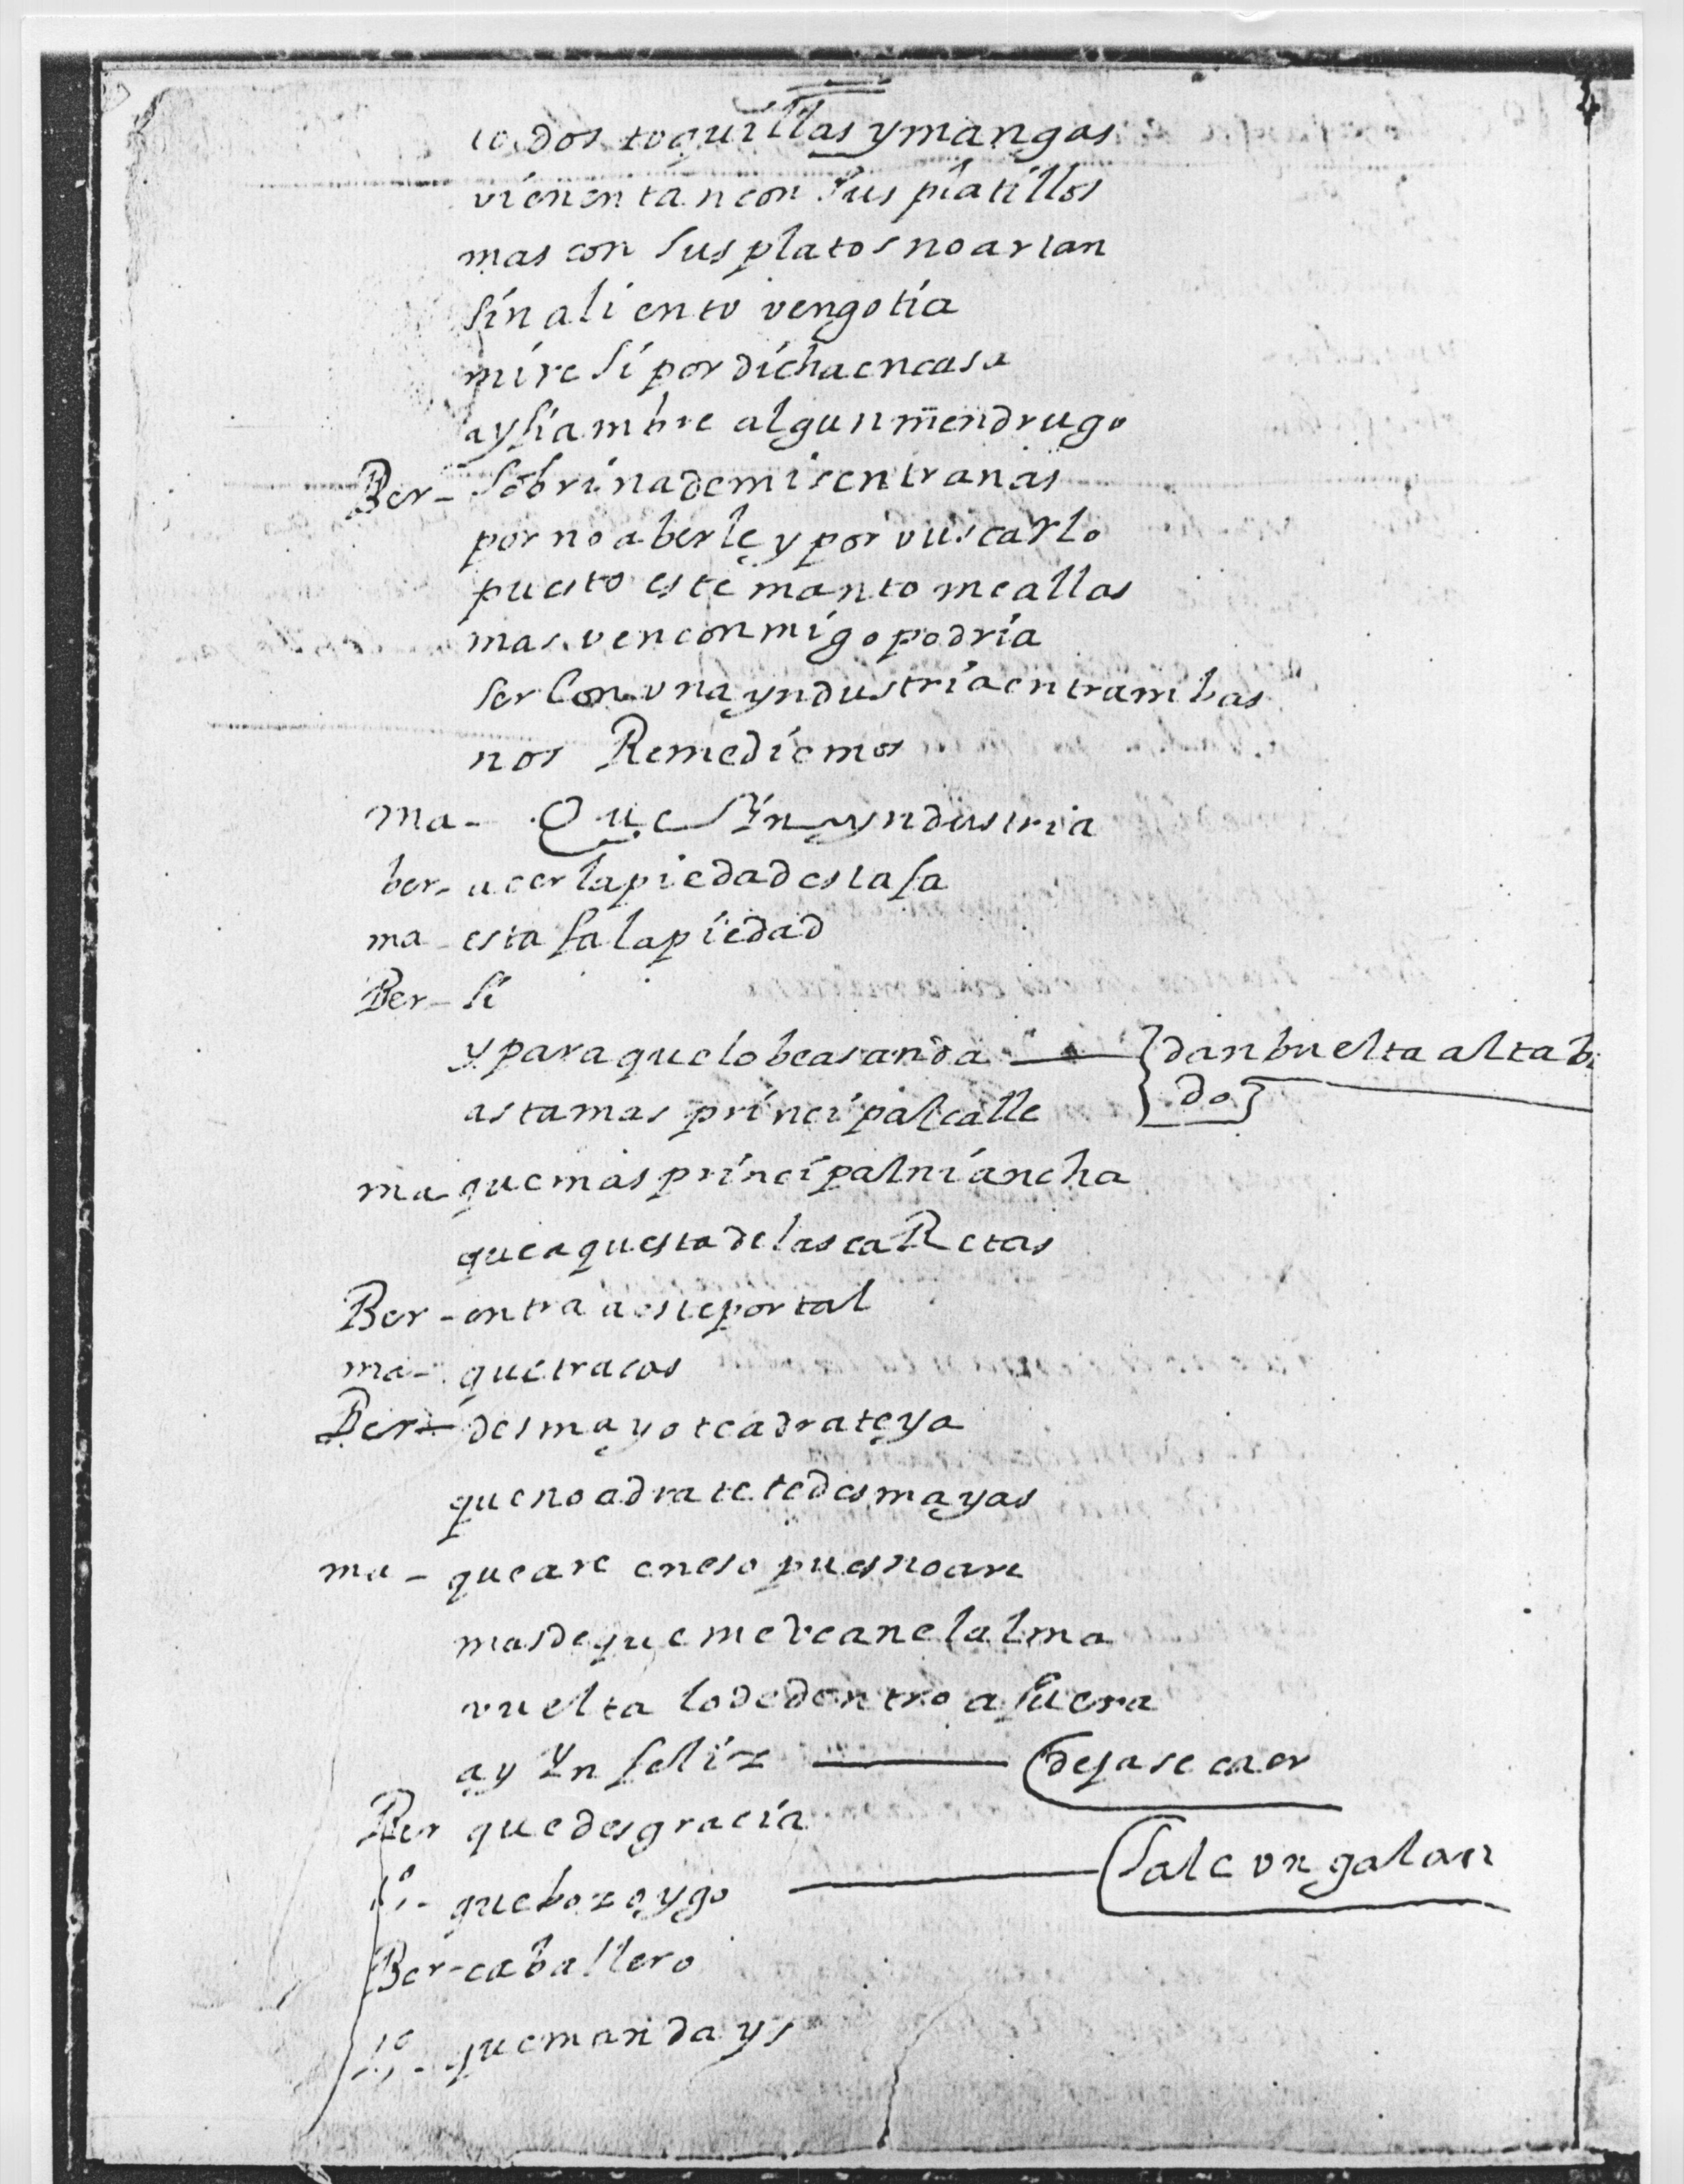 todos toquillas y mangas
vienen tan con sus platillos
mas con sus platos no arian
sin aliento vengo tia
mire si por dicha en casa
ay fiambre algun mendrugo
Ber- sobrina de mis entranas
por no aberle y por vuscarlo
puesto este manto me allas
mas ven conmigo podria
ser Con vna yndustria entrambas
nos Remediemos
ma- Que sin yndustria
ber- acer la piedad esta fa
ma- esta fa la piedad
Ber- si
y para que lo beas anda {dan buelta al tabl
asta mas principal calle do}
ma- que mas principal ni ancha
que aquesta de las caRetas
Ber- entra a este portal
ma- que tracas
Ber- desmayote adrateya
que no adrate te desmayas
ma- que are en eso pues no are
mas de que me vean el alma
vuelta lo de dentro a fuera
ay Ynfeliz (dejase caer
Ber que desgracia
1º- que boz oygo (sale vn galan
Ber- caballero
1º- que mandays